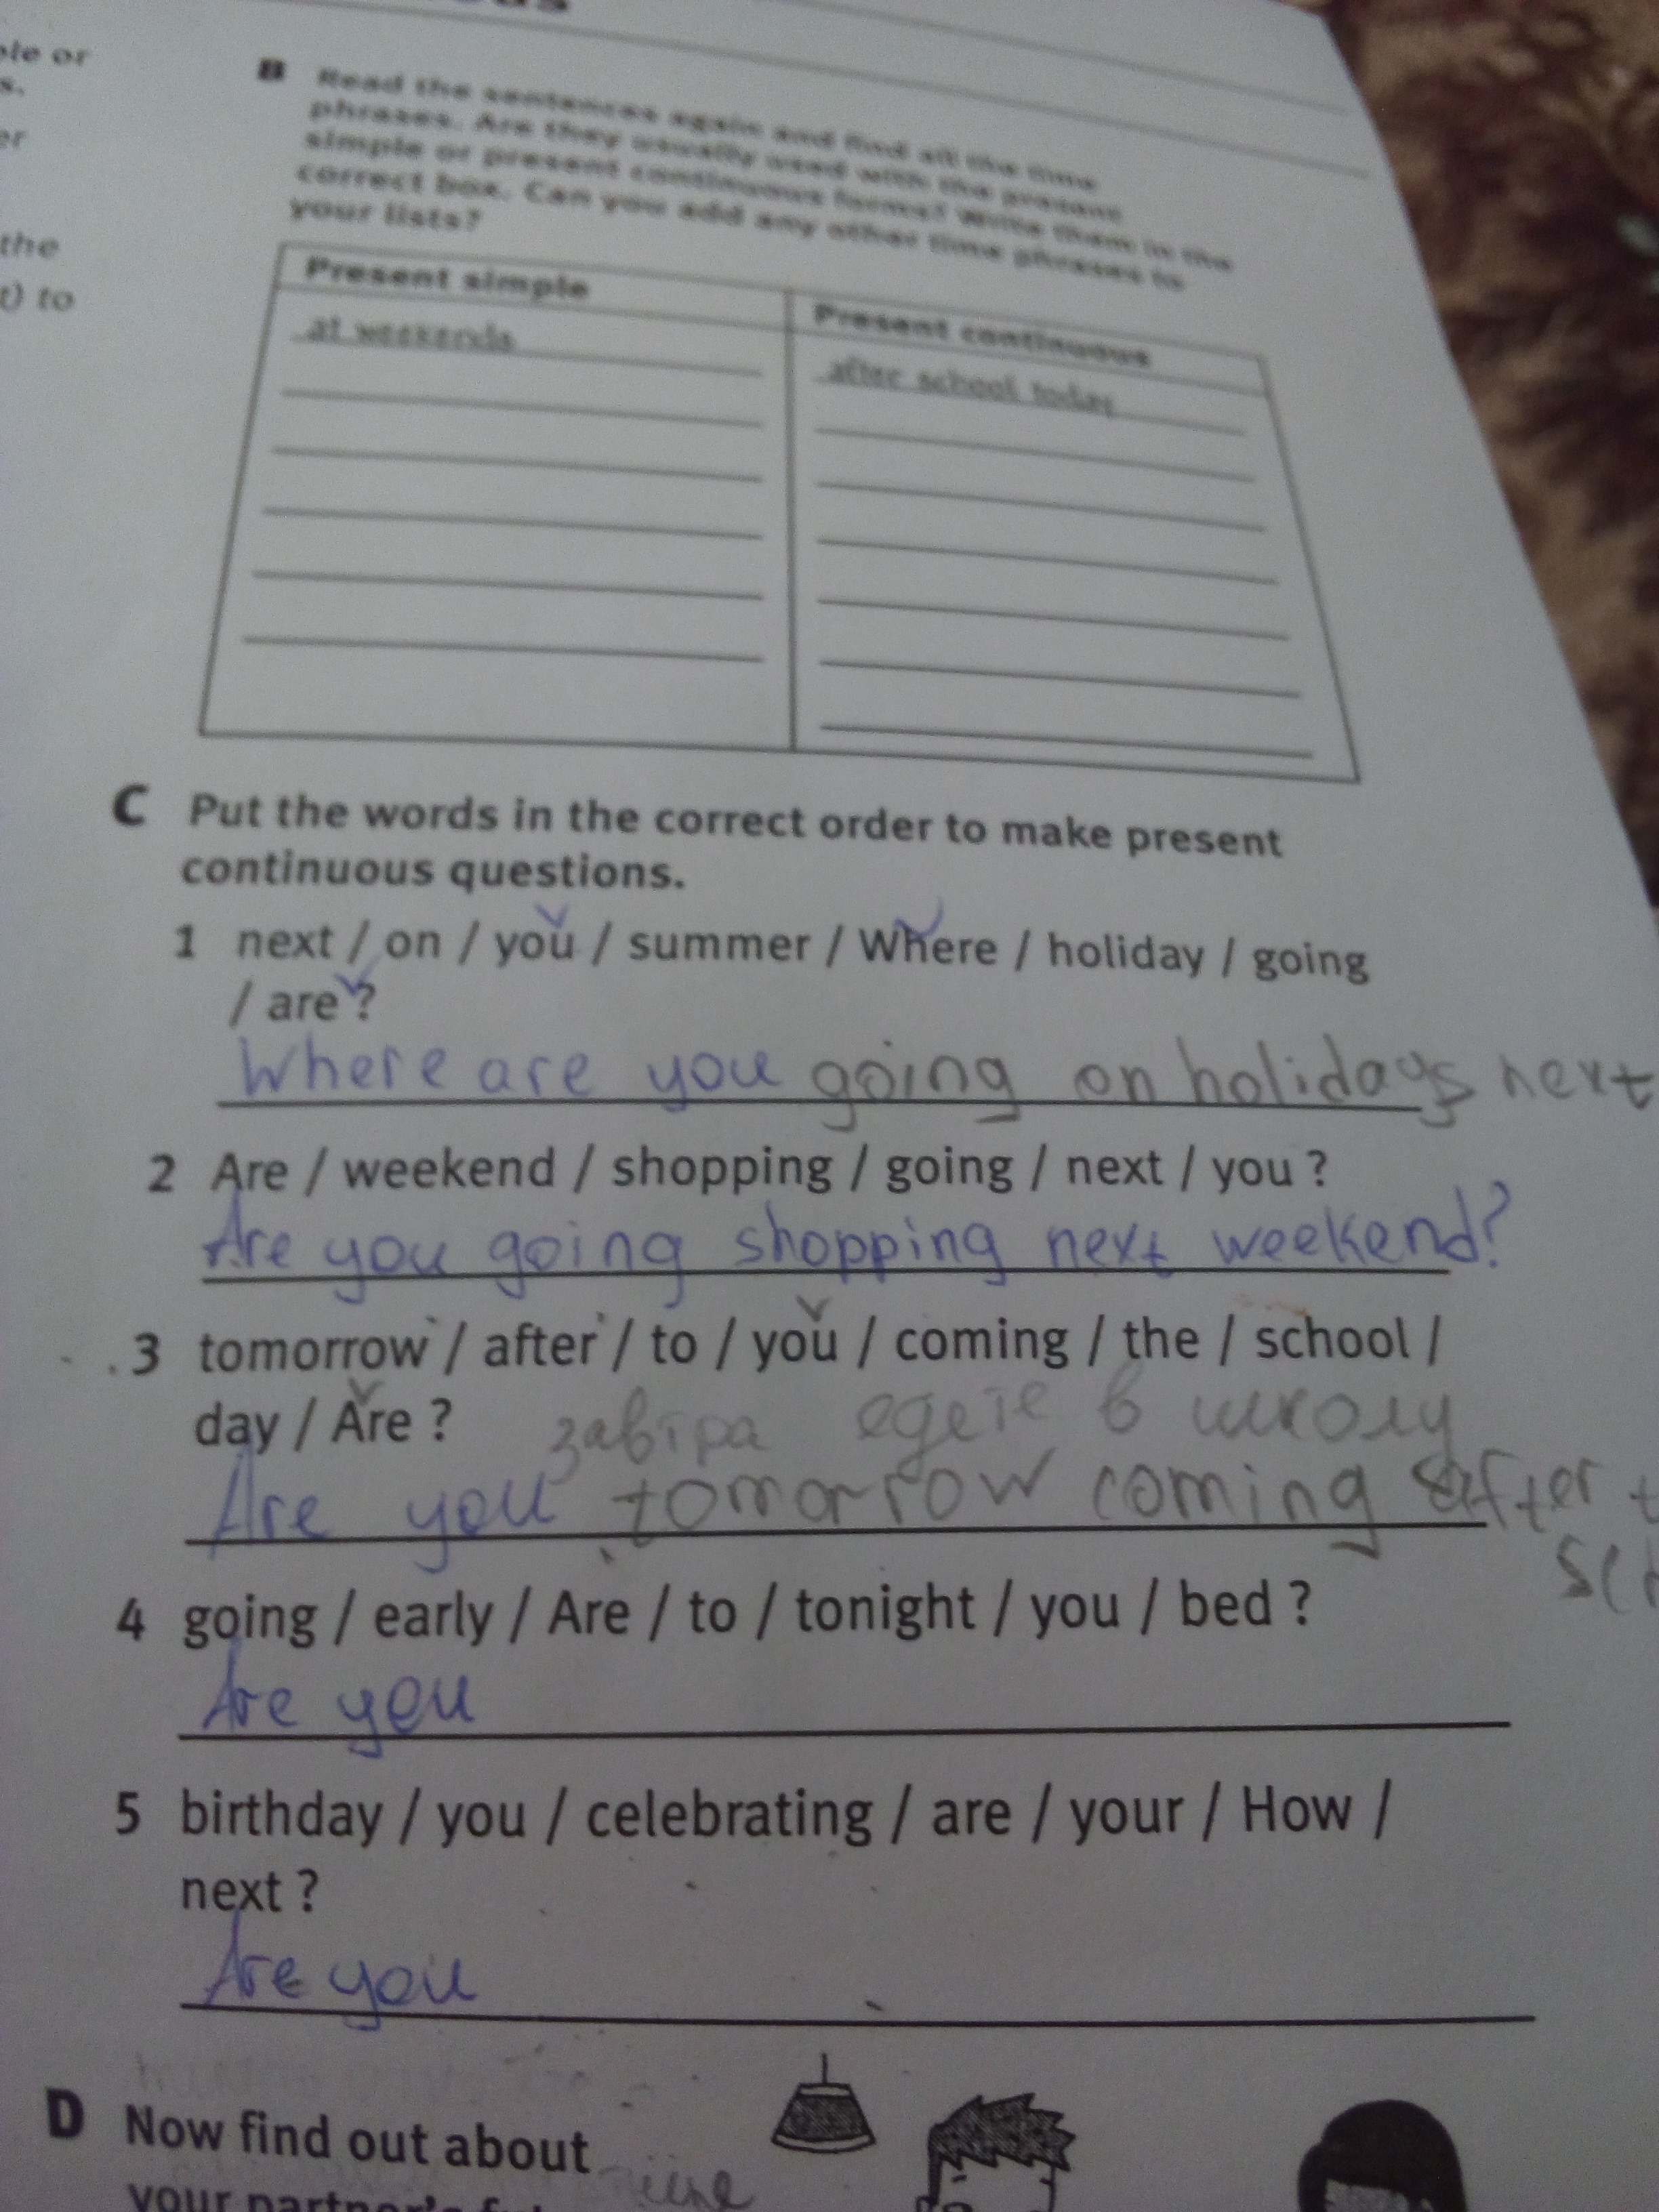 ple or
s.
er
the
t) to
B Read the sentences again and find all the time
phrases. Are they usually used with the present
simple or present continuous forms? Write them in the
correct box. Can you add any other time phrases to
your lists?
Present simple
at weekends
Present continuous
after school today
C Put the words in the correct order to make present
continuous questions.
1 next / on / you / summer / Where / holiday / going
/ are ?
Where are you going on holidays next
2 Are / weekend / shopping / going / next / you ?
Are you going shopping next weekend?
3 tomorrow / after / to / you / coming / the / school /
day / Are ?
завтра едете в школу
Are you tomorrow coming after t
sch
4 going / early / Are / to / tonight / you / bed ?
Are you
5 birthday / you / celebrating / are / your / How /
next ?
Are you
D Now find out about
your partner's fut